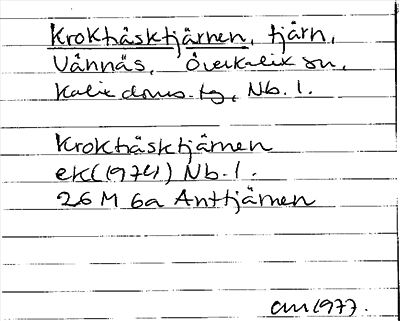 Krokträsktjärnen, tjärn,
Vännäs, Överkalix sn,
Kalix doms. tg, Nb. l.
Krokträsktjärnen
ek(1974) Nb. l.
26 M 6a Anttjärnen
am 1977.